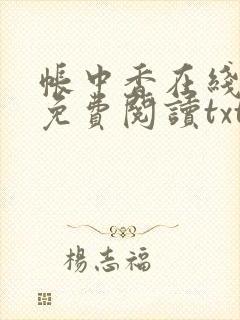 帳中香在綫
免費閱讀txt
楊志福